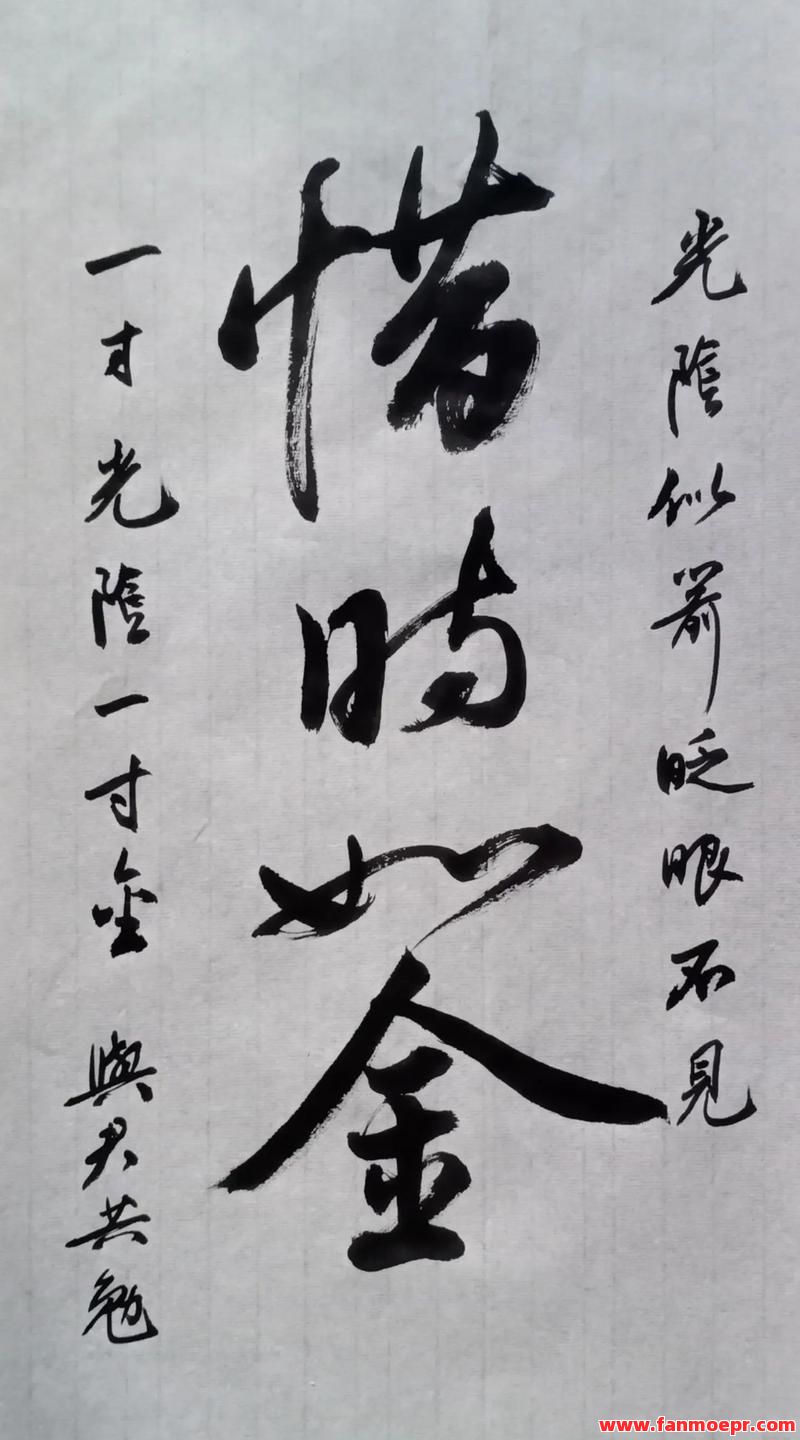 光陰似箭眨眼不見
惜時如金
一寸光陰一寸金 與君共勉
www.fanmoepr.com